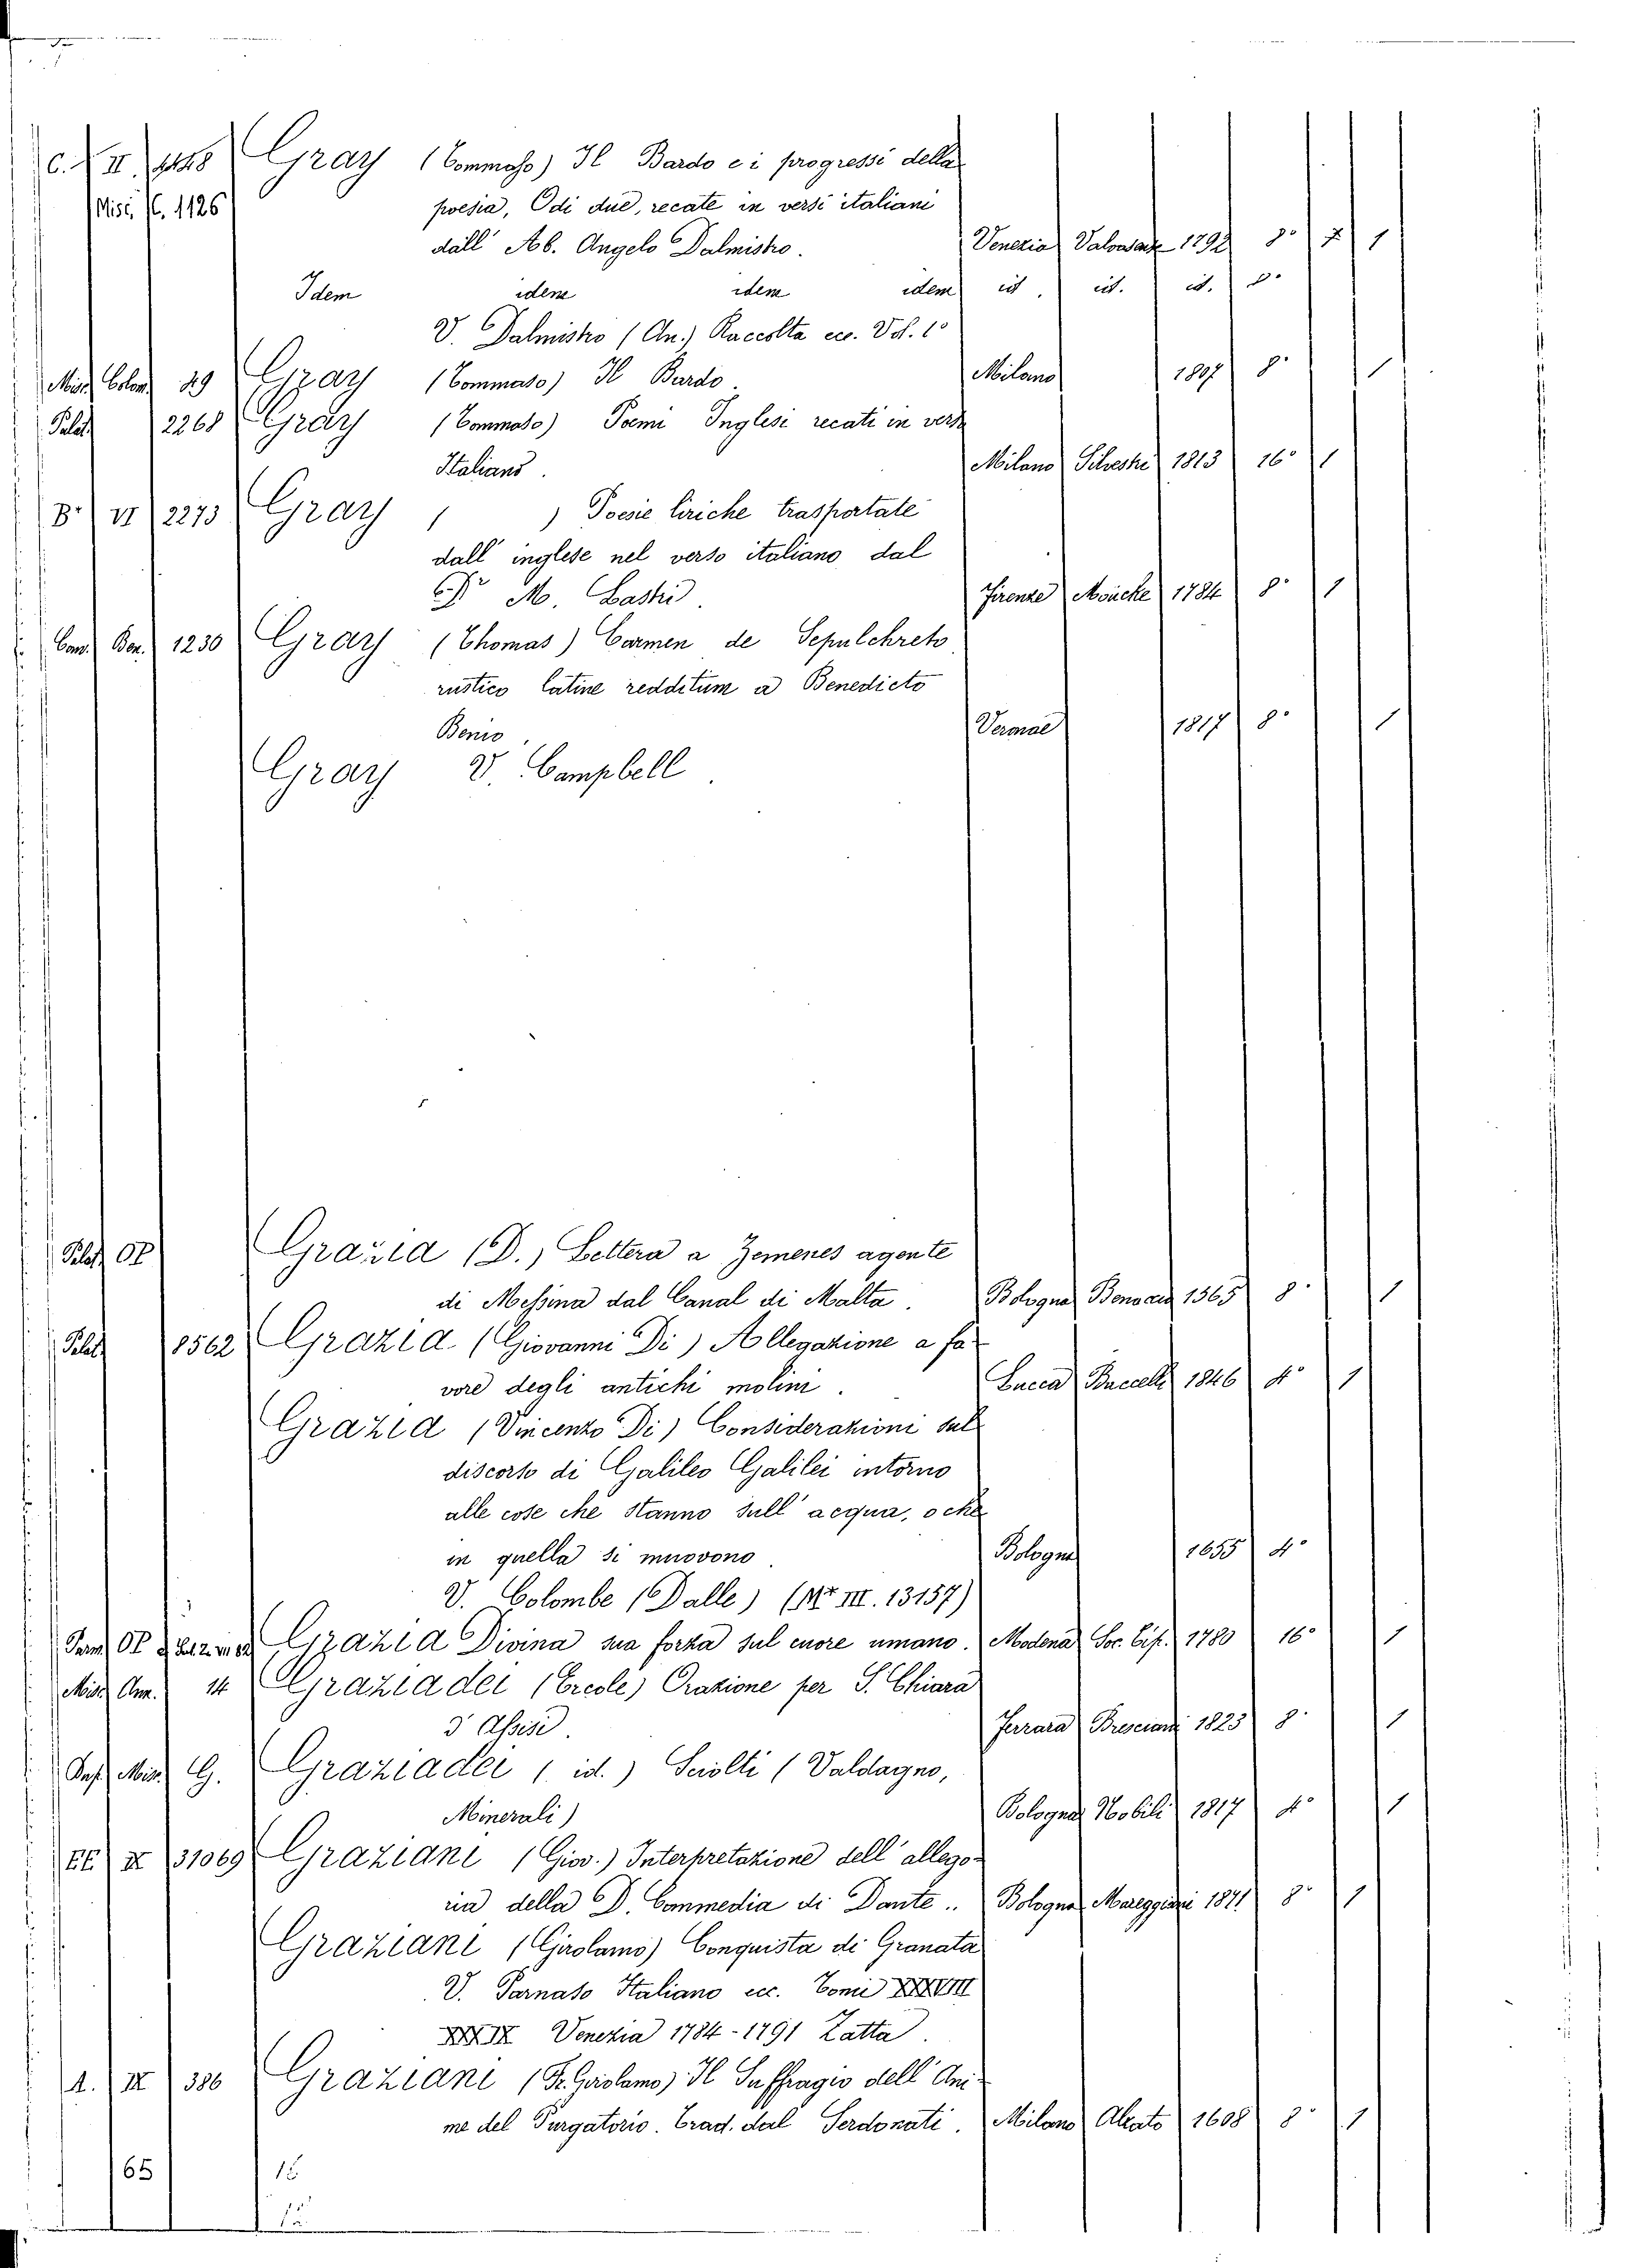 C. II. Gray (Tommaso) Il Bardo e i progressi della
Misc. C. 1126 poesia, Odi due, recate in versi italiani
dall' Ab. Angelo Dalmistro. Venezia 1792 8° 1
Idem idem idem idem cit. cit. cit. 8°
V. Dalmistro (An.) Raccolta ecc. Vol. 1°
Misc. Colom. 29 Gray (Tommaso) Il Bardo. Milano 1807 8° 1
Palat. 2268 Gray (Tommaso) Poemi Inglesi recati in versi
Italiani. Milano Silvestri 1813 16° 1
B. VI 2273 Gray ( ) Poesie liriche trasportate
dall' inglese nel verso italiano dal
Dr. M. Lastri. Firenze Moücke 1784 8° 1
Can. Ber. 1230 Gray (Thomas) Carmen de Sepulchreto
rustico latine redditum a Benedicto
Benio. Veronae 1817 8° 1
Gray V. Campbell.
Palat. OP Grazia (D.) Lettera a Zemenes agente
di Messina dal Canal di Malta. Bologna Benacci 1565 8° 1
Palat. 8562 Grazia (Giovanni Di) Allegazione a fa-
vore degli antichi molini. Lucca 1846 4° 1
Grazia (Vincenzo Di) Considerazioni sul
discorso di Galileo Galilei intorno
alle cose che stanno sull' acqua, o che
in quella si muovono. Bologna 1655 4°
V. Colombe (Dalle) (M. III. 13157)
OP Grazia Divina sua forza sul cuore umano. Modena Soc. Tip. 1780 16° 1
Misc. Ann. 14 Graziadei (Ercole) Orazione per S. Chiara
d'Assisi. Ferrara Bresciani 1823 8° 1
Misc. G. Graziadei (id.) Sciolti (Valdagno,
Minerali) Bologna Nobili 1817 4° 1
EE X 31069 Graziani (Giov.) Interpretazione dell' allego-
ria della D. Commedia di Dante.. Bologna Mareggiani 1871 8° 1
Graziani (Girolamo) Conquista di Granata
V. Parnaso Italiano ecc. Tomi XXXVIII
XXXIX Venezia 1784-1791 Zatta.
A. IX 386 Graziani (Fr. Girolamo) Il Suffragio dell' Ani-
me del Purgatorio. Trad. dal Serdonati. Milano Alzato 1608 8° 1
65 15
15